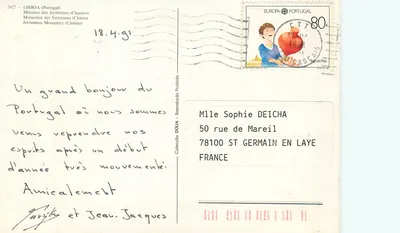 3927 - LISBOA (Portugal)
Mosteiro dos Jerónimos (Claustro)
Monastère des Jerónimos (Cloître)
Jerónimos Monastery (Cloister)
18.4.91
EUROPA CEPT PORTUGAL
80.
Un grand bonjour du
Portugal où nous sommes
venus reprendre nos
esprits après un début
d'année très mouvementé.
Amicalement
et Jean-Jacques
Colecção DÚLIA - Reprodução Proibida
Mlle Sophie DEICHA
50 rue de Mareil
78100 ST GERMAIN EN LAYE
FRANCE